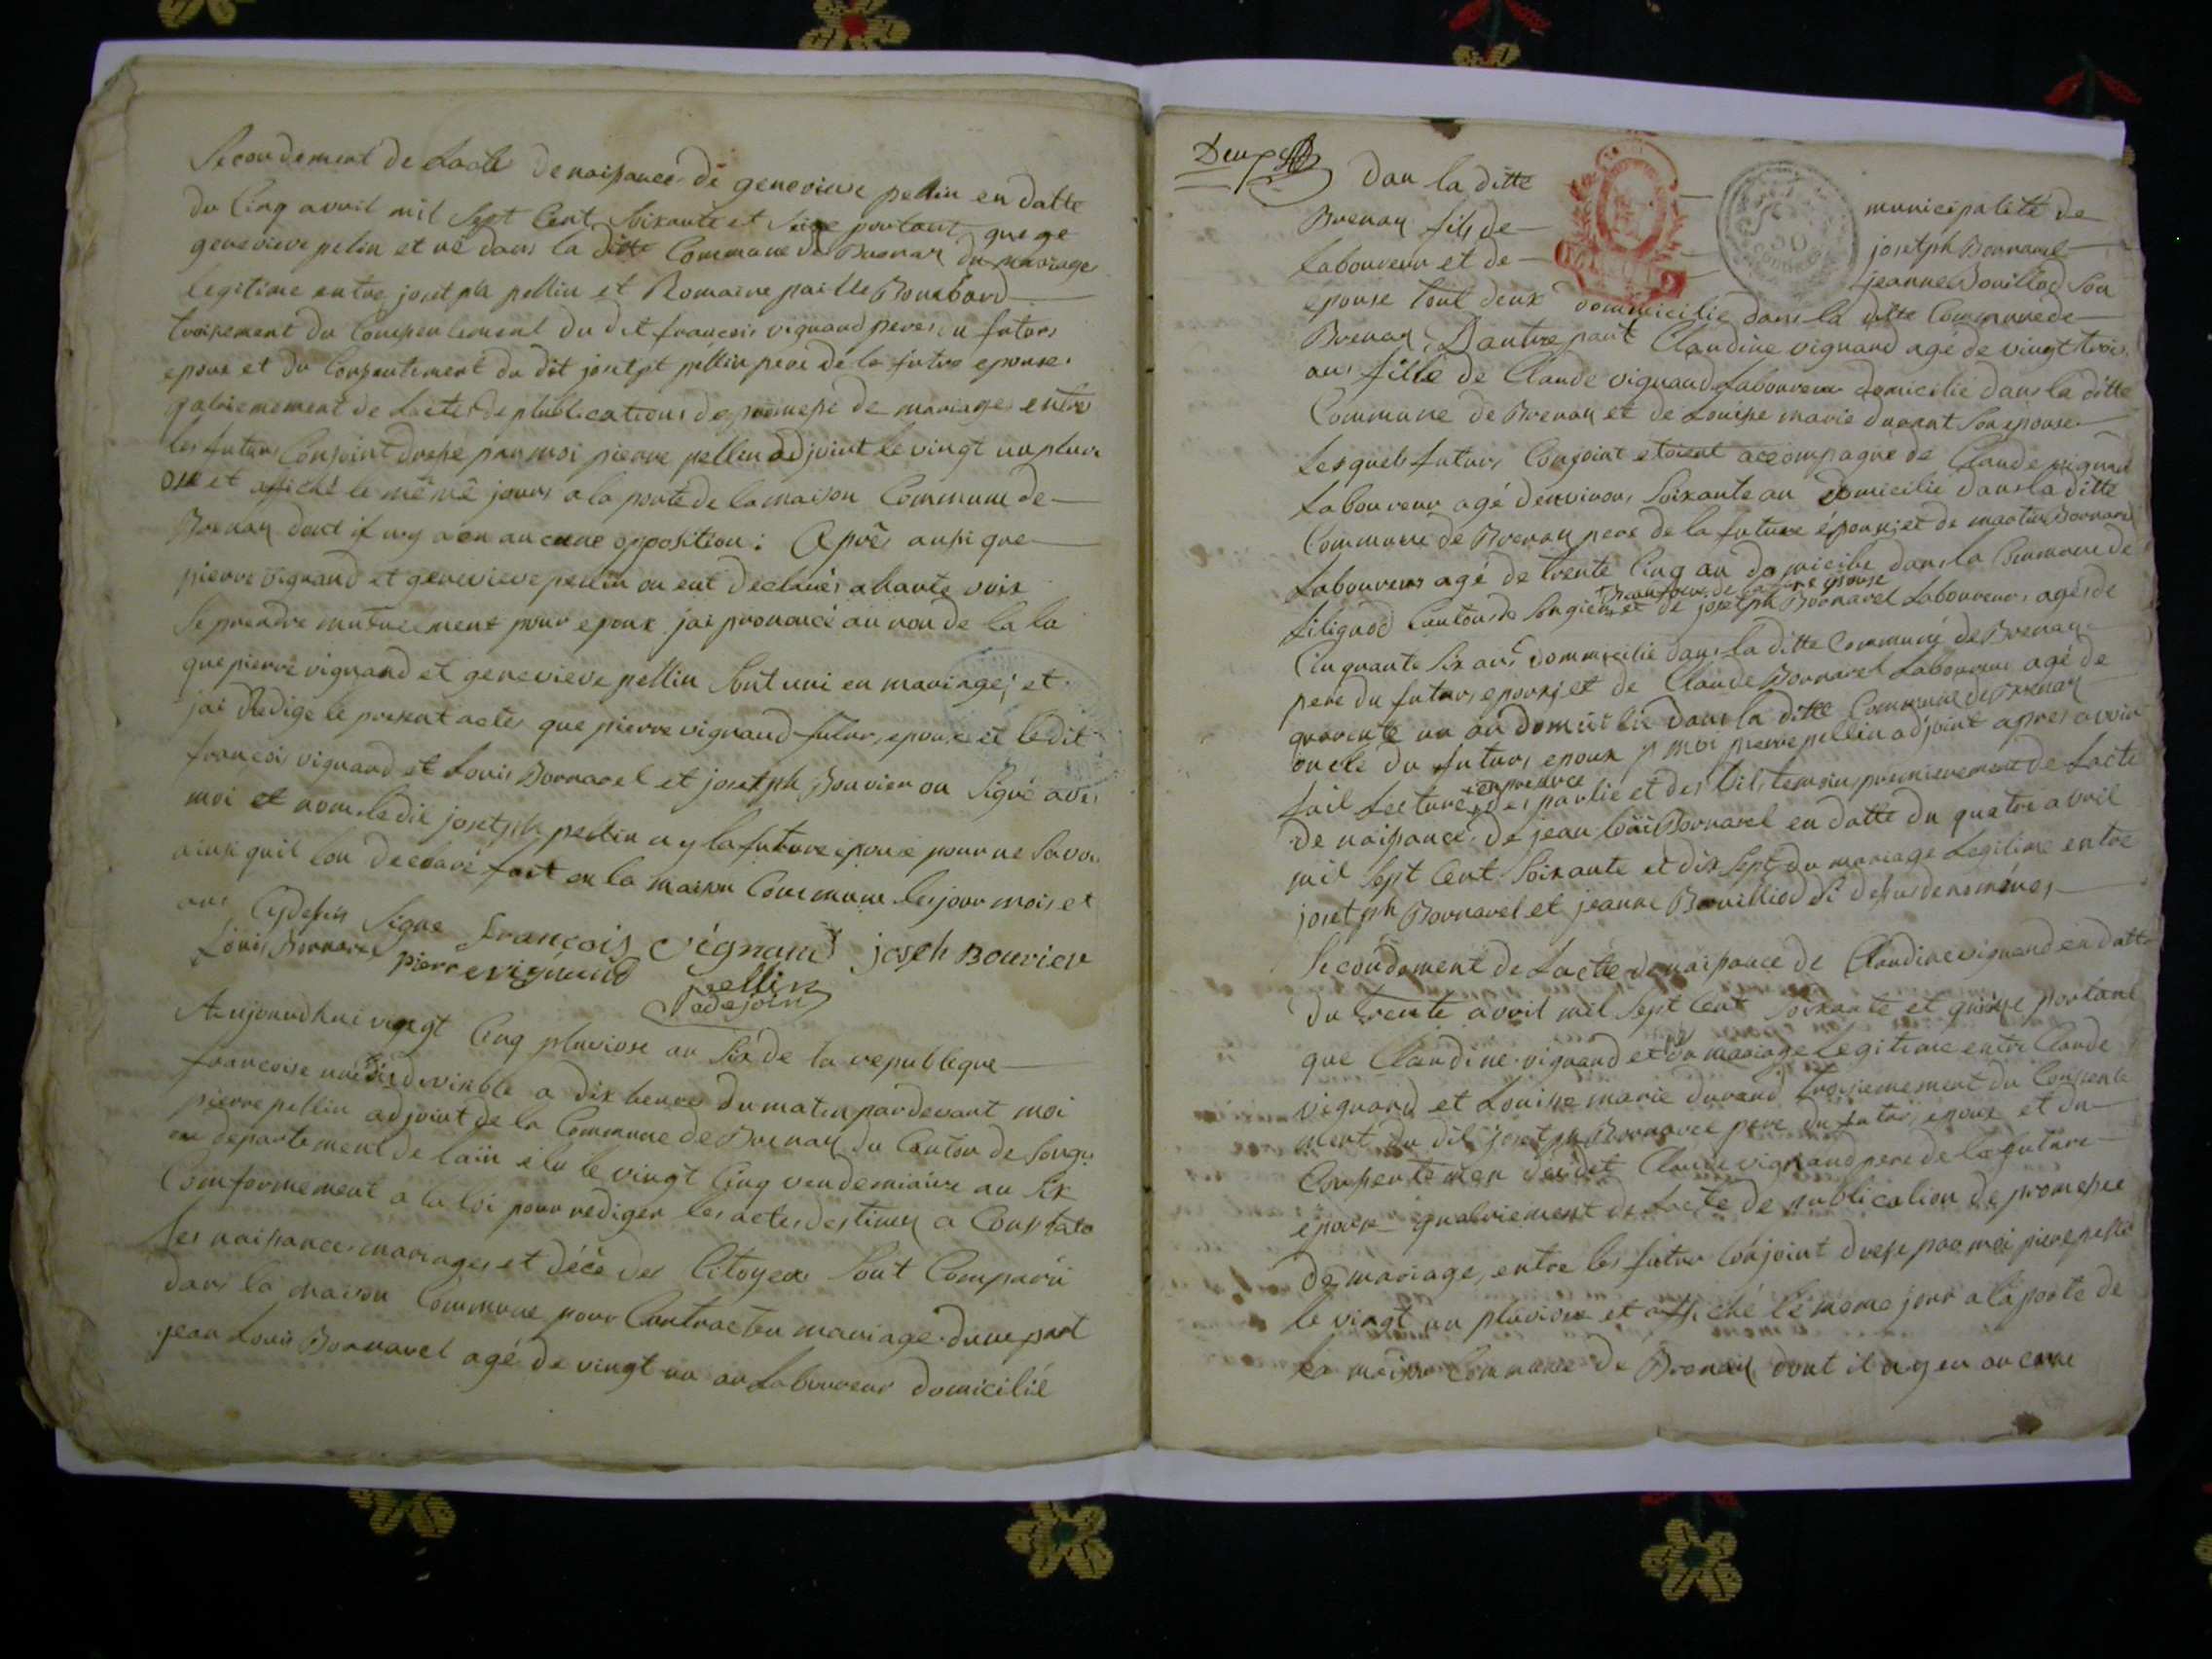 Secondement de Lacte de naisance de genevieve pellin en datte
du Cinq avril mil Sept Cent Soixante et Seize portant que ge
genevieve pelin et né dans la ditte Commune de Brenaz du mariage
legitime entre josetph pellin et Romaine paille Bonabord
troisement du Consentement du dit françois vignand pere du futurs
epoux et du Consentement du dit josetpt pellin pere de la futre epouse
qatriemement de Lactes de plublications de promese de mariage entre
les futurs Conjoint drese par moi pierre pellin adjoint le vingt un pluvi
ose et affiché le même jours a la porte de la maison Commune de
Brenaz dont il n'y a eu aucune opposition : Aprés ausi que
pierre vignand et genevieve pellin on eut declarés a haute voix
Se prendre mutuelement pour epoux jai prononcé au non de la la
que pierre vignand et genevieve pellin Sont uni en mariage ; et
jai Redige le present actes que pierre vignand futur epoux et ledit
françois vignand et Louis Bornarel et josetph Bouvier on Signé avec
moi et nom ledit josetph pellin n y la future epouse pour ne Savoi
ainsi quil lon declaré fait en la maison Commune les jour mois et
ans Cydesus Signe françois vignand joseh Bouvier
Louis Bornarel pierre vignand pellin
adejoin
Aujourdhui vingt Cinq pluviose an Six de la republeque
francoise une indivisible a dix heures du matin pardevant moi
pierre pellin adjoint de la Commune de Brenaz du Canton de Songi
eu departement de lain elu le vingt Cinq vendemiaire an Six
Comformement a la loi pour rediger les actes destines a Constate
les naisances mariages et décè des Citoyens Sont Comparu
dans la maison Commune pour Contracter mariage dune part
jean Louis Bornarel agé de vingt un an Laboureur domicilié
Deux
dan la ditte municipalité de
Brenaz fils de josetph Bornarel
Laboureur et de jeanne Bouillod Son
epouse tout deux dommicilie dans la ditte Commune de
Brenaz Dautre part Claudine vignand agé de vingt trois
ans fille de Claude vignand Laboureur domicilie dans la ditte
Commune de Brenaz et de Louise marie durant Son epouse
Lesquels futurs Conjoint etoient accompagné de Claude vignand
Laboureur agé denvirons Soixante an domicilié dans la ditte
Commune de Brenaz pere de la future épouse; et de martin Bornarel
Laboureur agé de trente Cinq an domicilie dans la Commune de
filignod Canton de Songieu Beaufrere de la future epouse et de josetph Bornarel Laboureur agés de
Cinquante Six ans dommicilie dans la ditte Commune de Brenaz
pere du futurs epoux; et de Claude Bornarel Laboureur agé de
quarente un an domicilie dans la ditte Commune de Brenaz
oncle du futurs epoux moi pierre pellin adjoint apres avoir
fait Lecture en presence des partie et des dits temoins premierement de Lacte
de naisance de jean loui Bornarel en datte du quatre avril
mil Sept Cent Soixante et dix Sept du mariage Legitime entre
josetph Bornarel et jeanne Bouilliod Si desus denomines
Secondement de Lacte de naisance de Claudine vignand en datte
du trente avril mil Sept Cent Soixante et quinse portant
que Claudine vignand et du mariage Legitime entre Claude
vignand et Louise marie durand troisiemement du Consente
ment du dit josetph Bornarel pere du futur epoux et du
Consentemen dudit Claude vignand pere de la future
epouse quatriement de Lacte de publication de promesse
de mariage, entre les futur Conjoint drese par moi piere pellin
le vingt un pluviose et affiché le meme jour a la porte de
la maison Commune de Brenaz dont il n y eu aucune